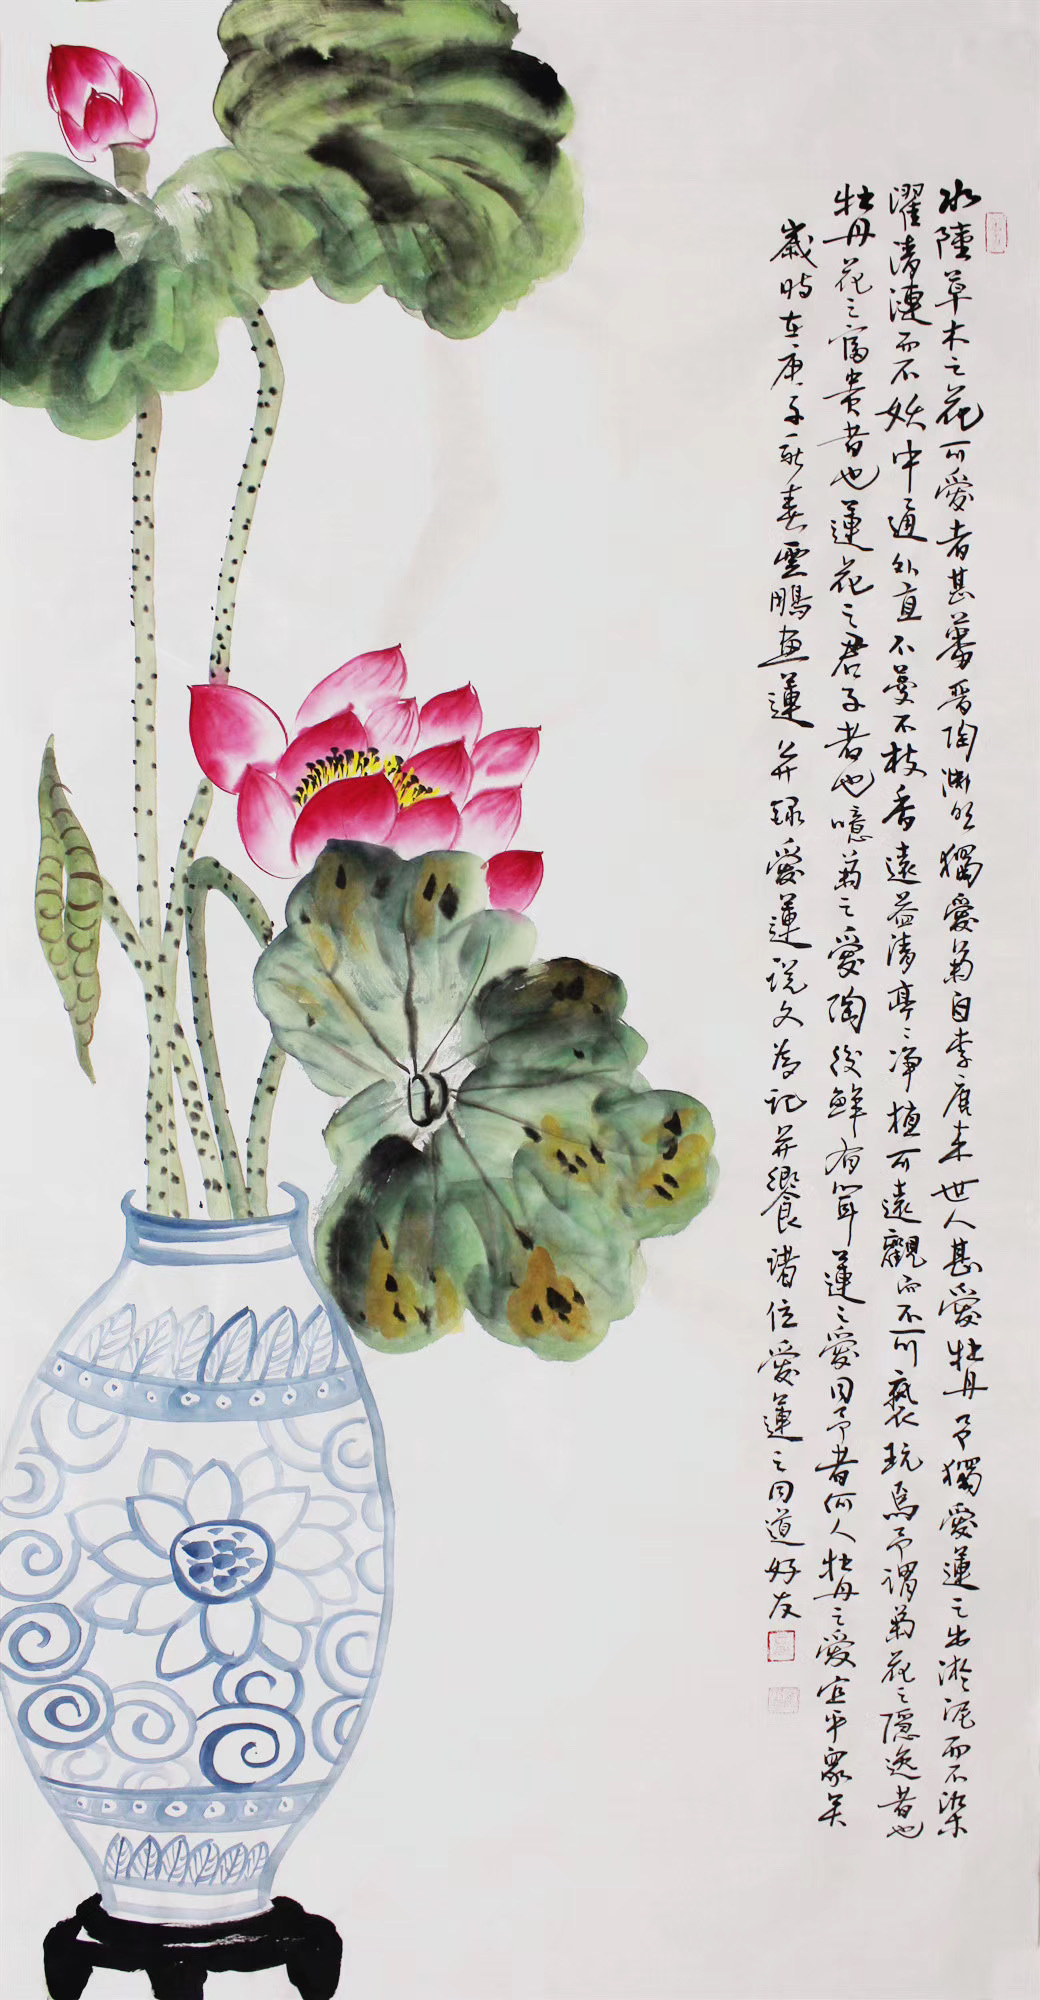 水陸草木之花可愛者甚蕃晉陶渊明獨愛菊自李唐来世人甚愛牡丹予獨愛蓮之出淤泥而不染
濯清漣而不妖中通外直不蔓不枝香遠益清亭亭净植可遠觀而不可褻玩焉予謂菊花之隱逸者也
牡丹花之富貴者也蓮花之君子者也噫菊之愛陶後鮮有聞蓮之愛同予者何人牡丹之愛宜乎衆矣
歲时在庚子新春雲鵬画蓮并録愛蓮説文為记并饗诸位愛蓮之同道好友